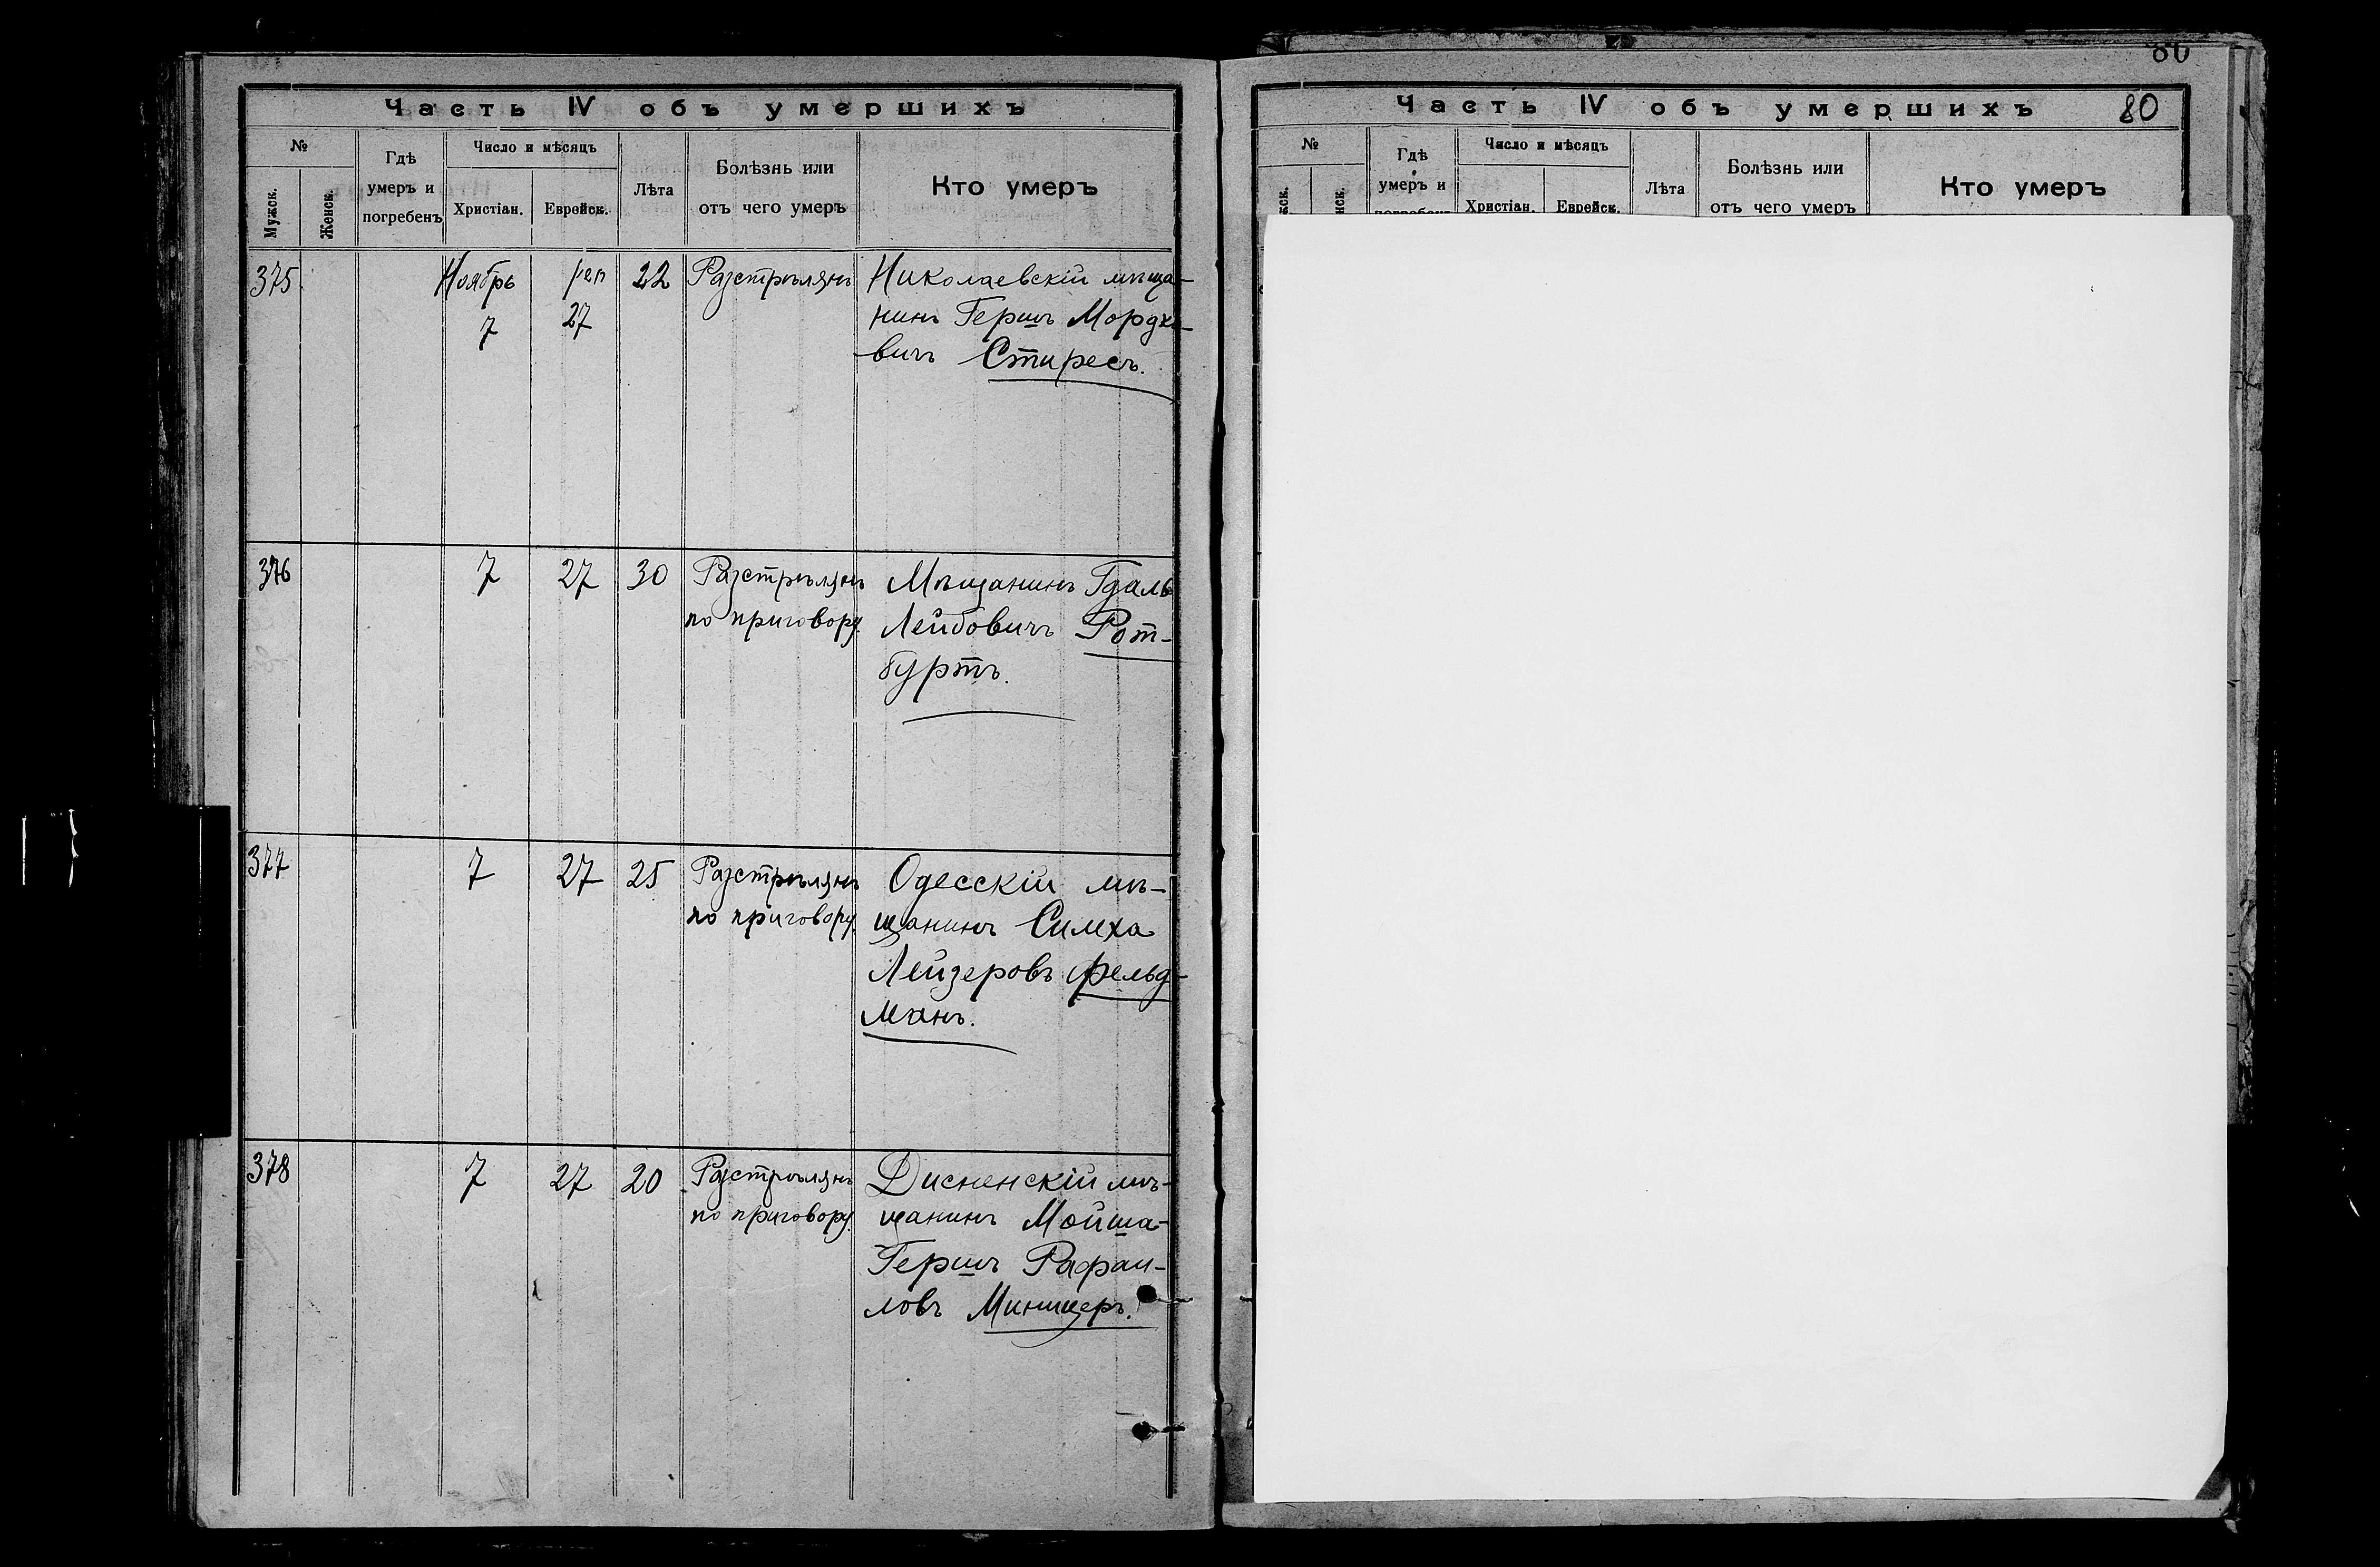 Часть IV объ умершихъ
№
Мужск.
Женск.
Гдѣ
умеръ и
погребенъ
Число и мѣсяцъ
Христіан.
Еврейск.
Лѣта
Болѣзнь или
отъ чего умеръ
Кто умеръ
375
Ноябрь
7
27
22
Разстрѣлянъ
Николаевскій мѣща-
нинъ Гершъ Мордко-
вичъ Стиресъ.
376
7
27
30
Разстрѣлянъ
по приговору.
Мѣщанинъ Гдаль
Лейбовичъ Рот-
буртъ.
377
7
27
25
Разстрѣлянъ
по приговору.
Одесскій мѣ-
щанинъ Симха
Лейзеровъ Фельд-
манъ.
378
7
27
20
Разстрѣлянъ
по приговору.
Дисненскій мѣ-
щанинъ Мойша-
Гершъ Рафаи-
ловъ Миницеръ.
80
Часть IV объ умершихъ
80
№
Гдѣ
умеръ и
погребенъ
Число и мѣсяцъ
Христіан.
Еврейск.
Лѣта
Болѣзнь или
отъ чего умеръ
Кто умеръ